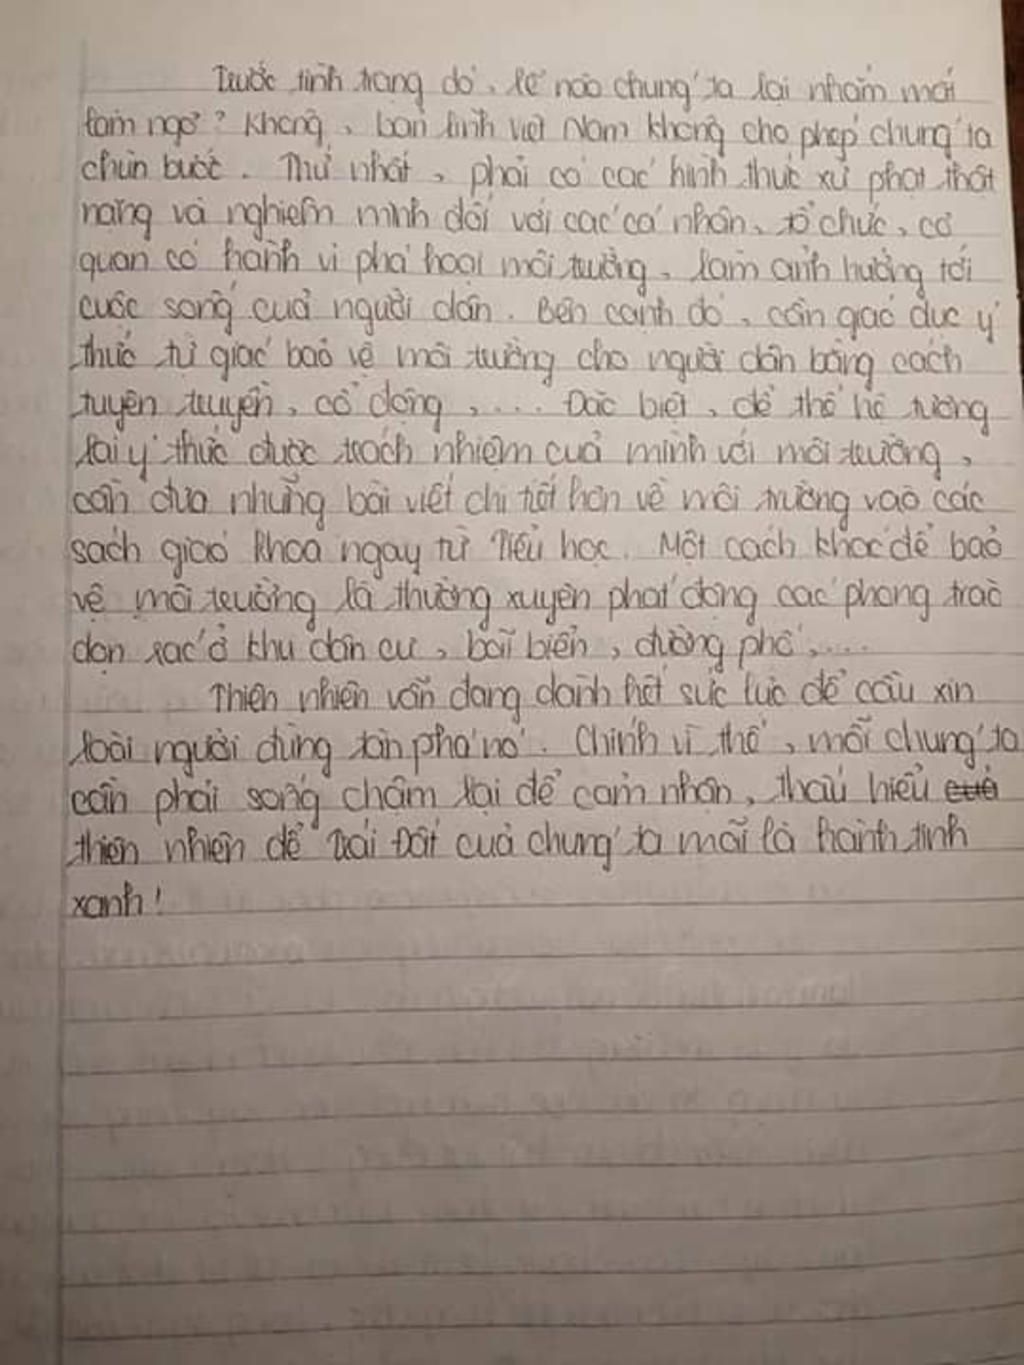 Trước tình trạng đó, lẽ nào chúng ta lại nhắm mắt
làm ngơ? Không, bản lĩnh Việt Nam không cho phép chúng ta
chùn bước. Thứ nhất, phải có các hình thức xử phạt thật
nặng và nghiêm minh đối với các cá nhân, tổ chức, cơ
quan có hành vi phá hoại môi trường, làm ảnh hưởng tới
cuộc sống của người dân. Bên cạnh đó, cần giáo dục ý
thức tự giác bảo vệ môi trường cho người dân bằng cách
tuyên truyền, cổ động,... Đặc biệt, để thế hệ tương
lai ý thức được trách nhiệm của mình với môi trường,
cần đưa những bài viết chi tiết hơn về môi trường vào các
sách giáo khoa ngay từ Tiểu học. Một cách khác để bảo
vệ môi trường là thường xuyên phát động các phong trào
dọn rác ở khu dân cư, bãi biển, đường phố,....
Thiên nhiên vẫn đang dành hết sức lực để cầu xin
loài người đừng tàn phá nó. Chính vì thế, mỗi chúng ta
cần phải sống chậm lại để cảm nhận, thấu hiểu của
thiên nhiên để Trái Đất của chúng ta mãi là hành tinh
xanh!